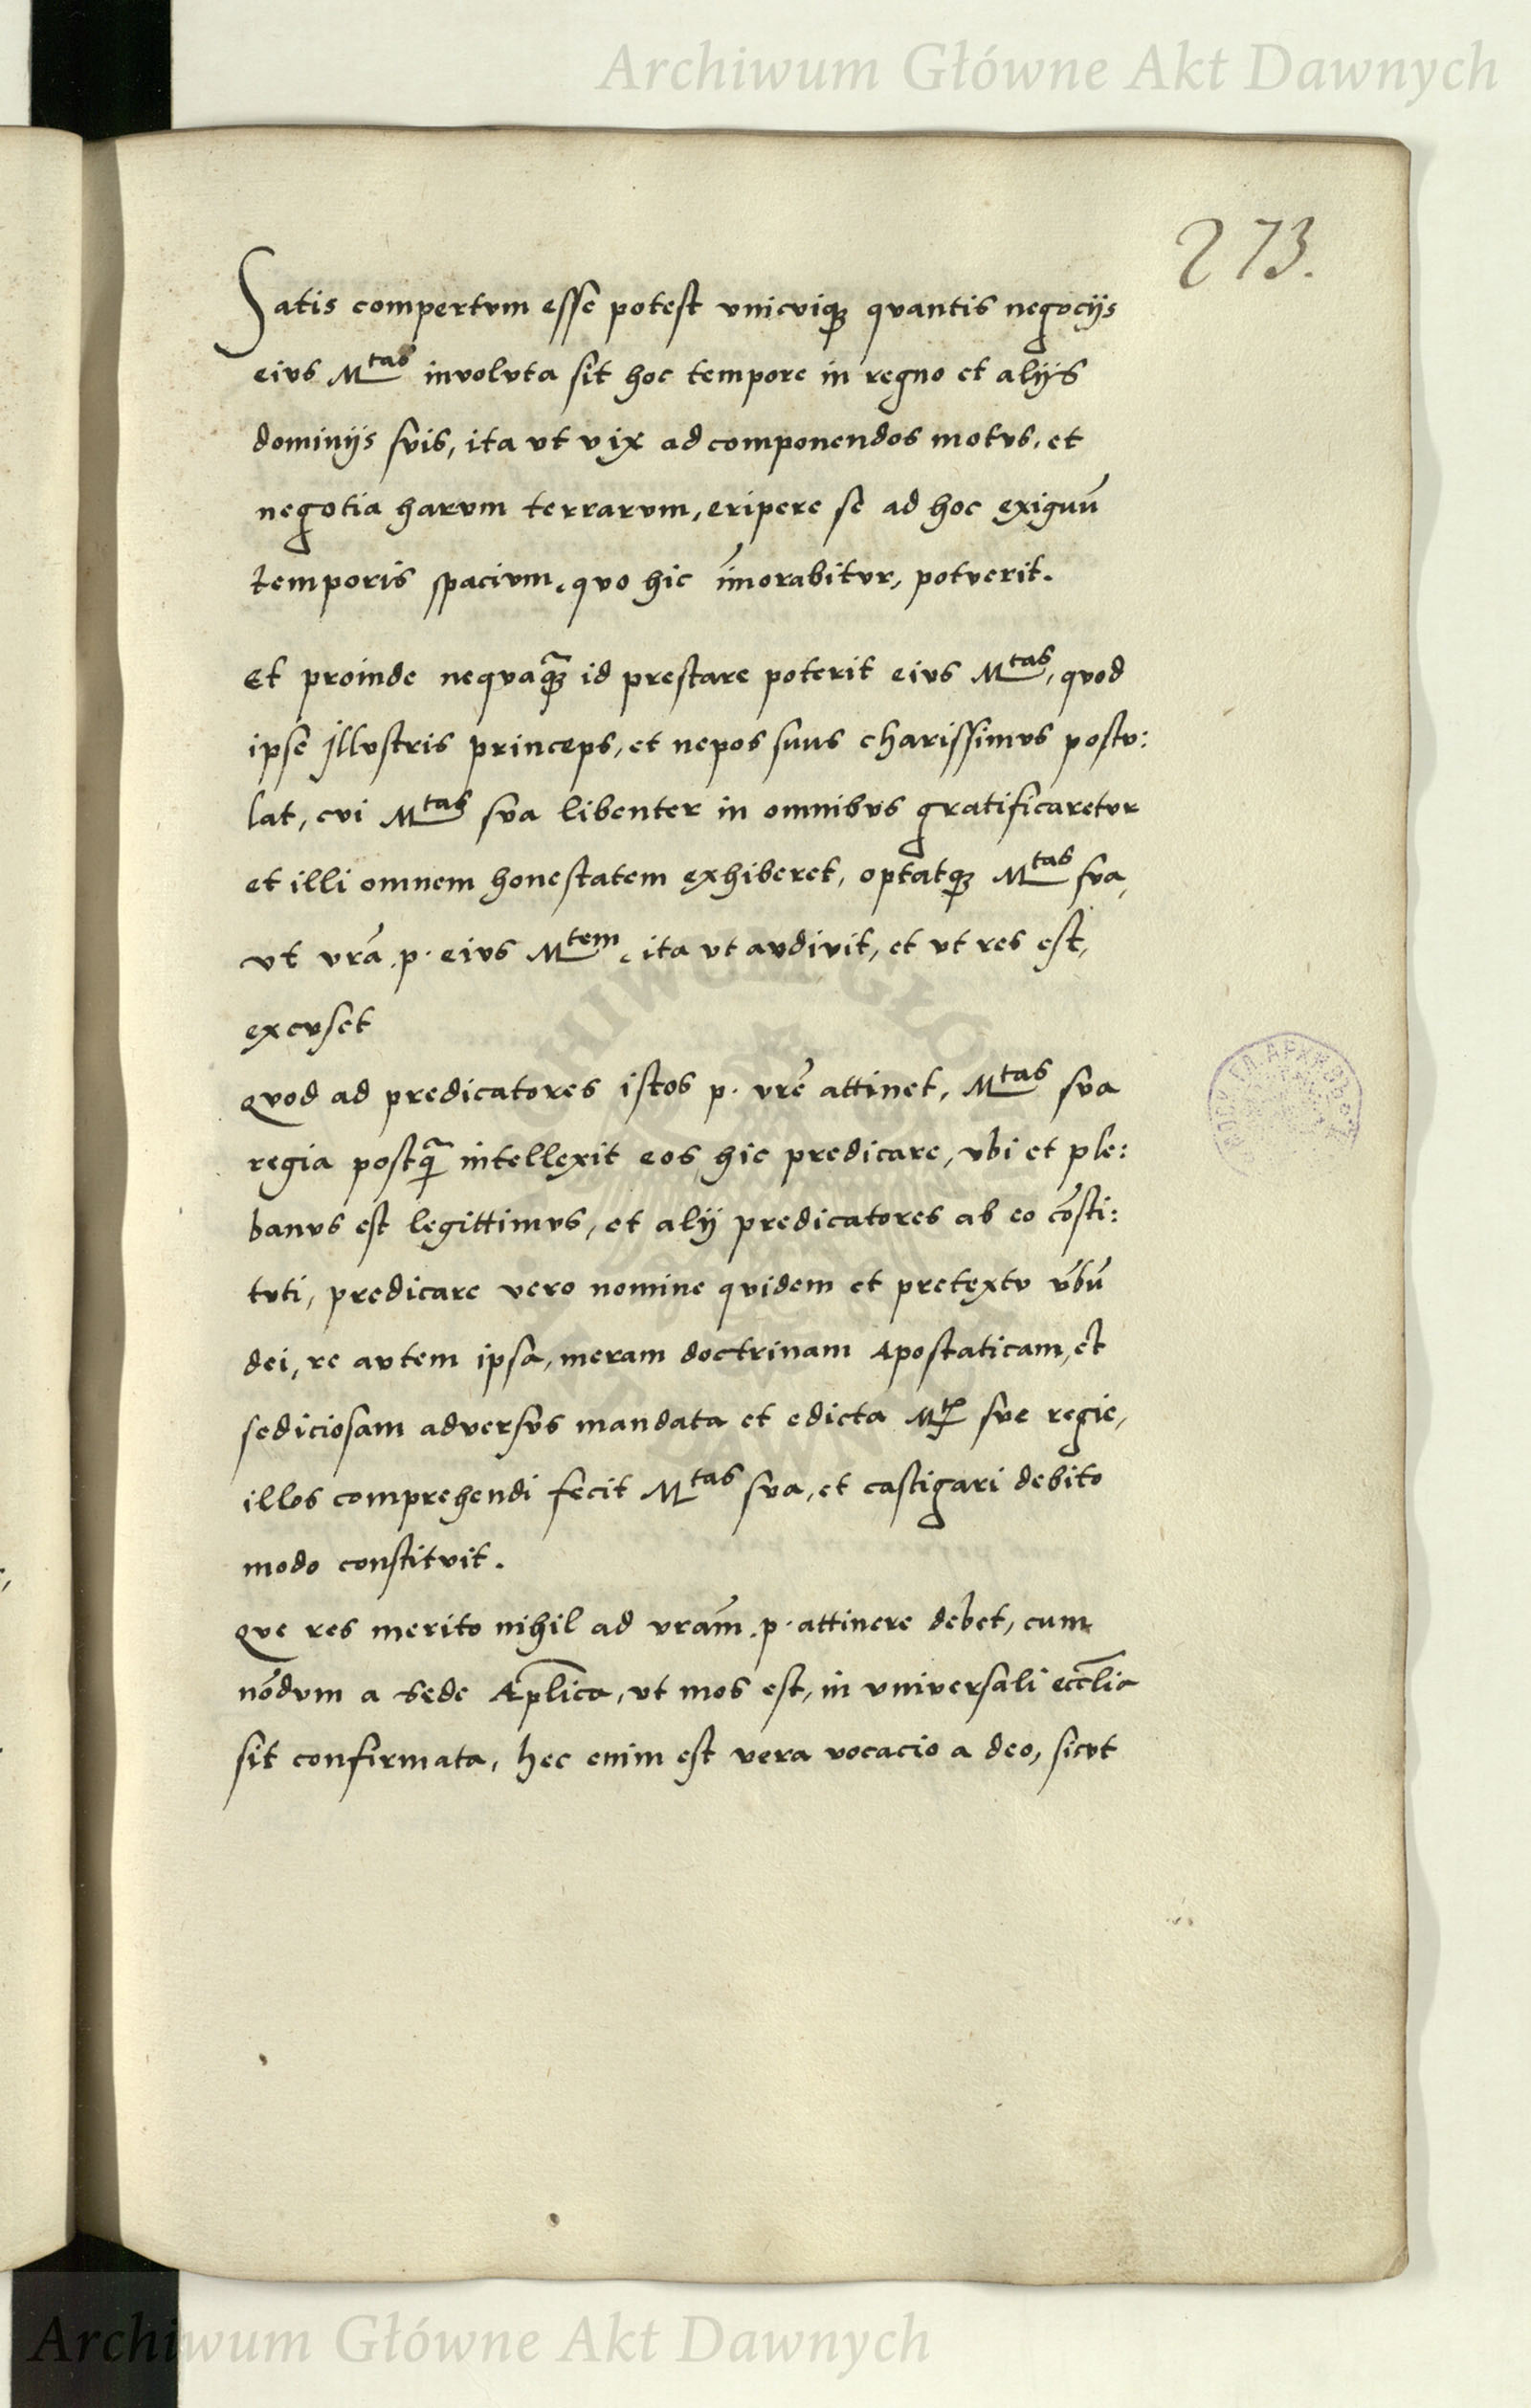 Archiwum Główne Akt Dawnych
273.
Satis compertvm esse potest vnicviqꝫ qvantis negocijs
eivs M^tas involvta sit hoc tempore in regno et alijs
dominijs svis, ita vt vix ad componendos motvs, et
negotia harvm terrarvm, eripere se ad hoc exiguū
temporis spacivm, qvo hic īmorabitvr, potverit.
Et proinde neqvaqꝫ̄ id prestare poterit eivs M^tas, qvod
ipse Jllvstris princeps, et nepos suus charissimvs postv:
lat, cvi M^tas sva libenter in omnibvs gratificaretvr
et illi omnem honestatem exhiberet, optatqꝫ M^tas sva,
vt vrā .p. eivs M^tem, ita vt avdivit, et vt res est,
excvset
Qvod ad predicatores istos p. vrē attinet, M^tas sva
regia postꝙ̄ intellexit eos hic predicare, vbi et ple:
banvs est legittimvs, et alij predicatores ab eo cōsti:
tvti, predicare vero nomine qvidem et pretextv v̄bū
dei, re avtem ipsa, meram doctrinam Apostaticam, et
sediciosam adversvs mandata et edicta M^tꝭ sve regie,
illos comprehendi fecit M^tas sva, et castigari debito
modo constitvit.
Qve res merito nihil ad vrām .p. attinere debet, cum
nōdvm a sede Ap̄lica, vt mos est, in vniversali eccl̄ia
sit confirmata, hec enim est vera vocacio a deo, sicvt
Archiwum Główne Akt Dawnych